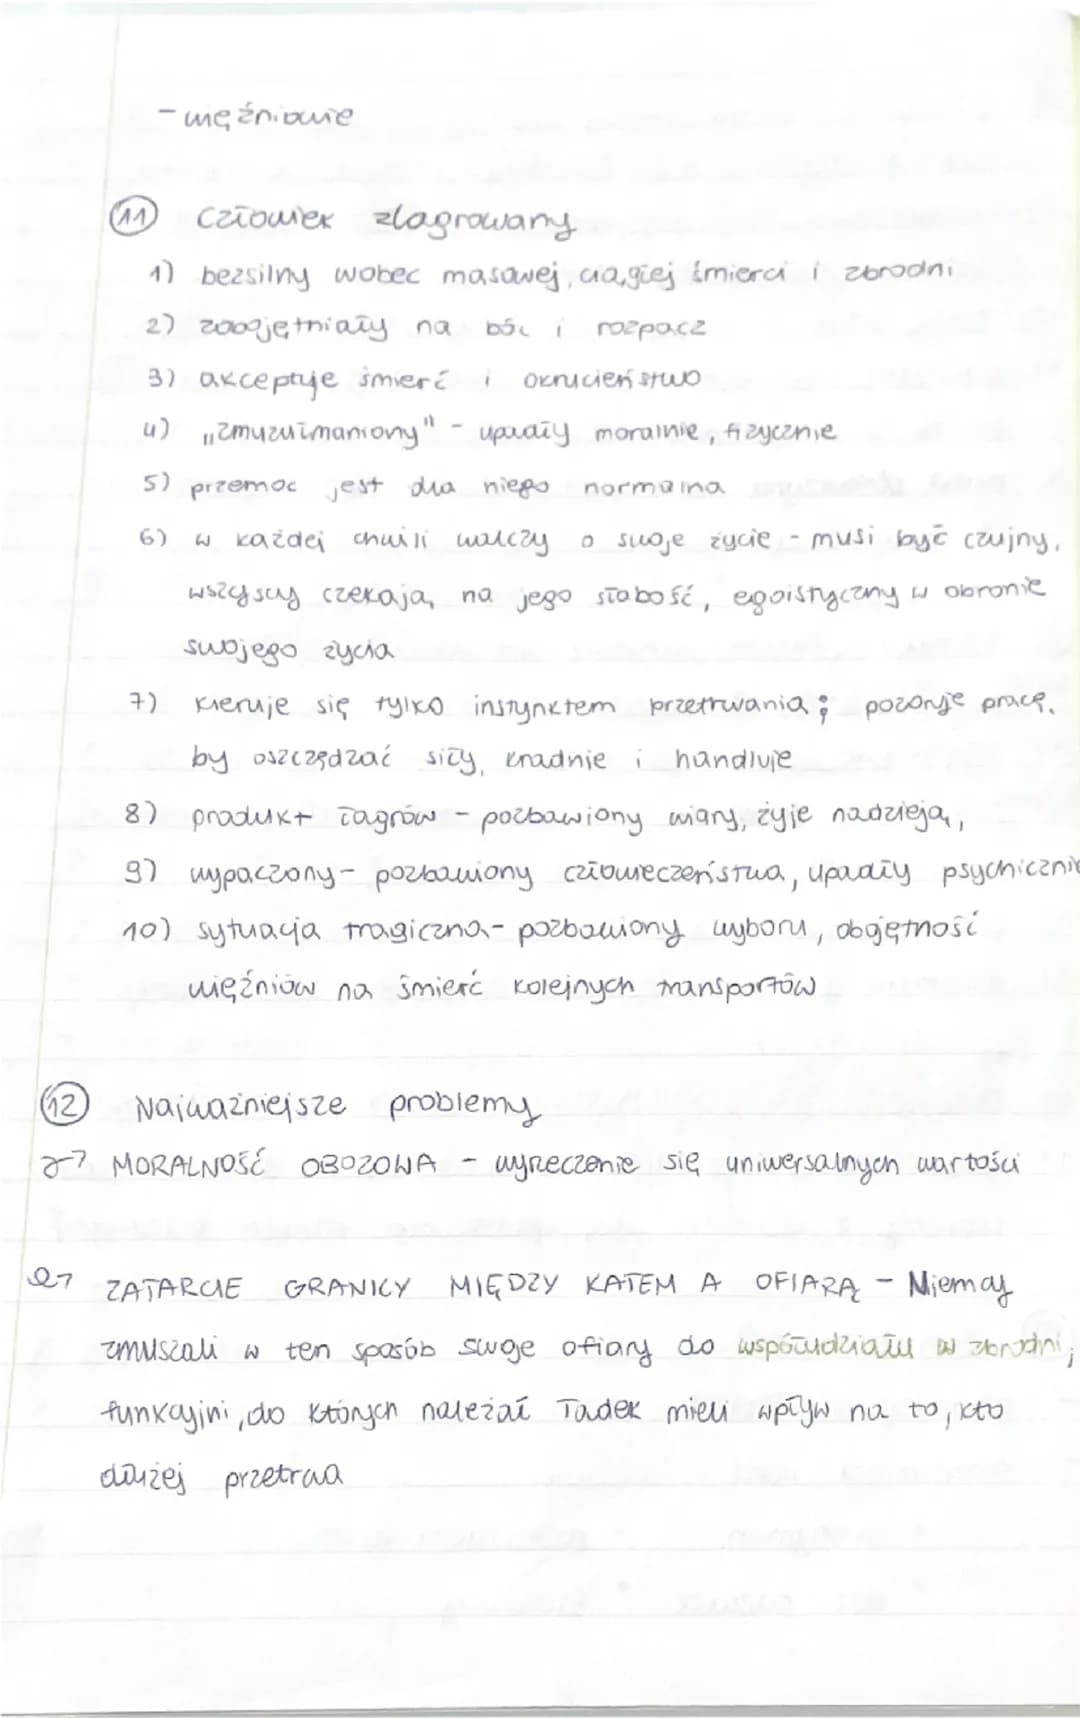 - więźniowie
11 Człowiek zlagrowany
1) bezsilny wobec masowej, ciągłej śmierci i zbrodni
2) zobojętniały na ból i rozpacz
3) akceptuje śmierć i okrucieństwo
4) „zmuzułmaniony" - upadły moralnie, fizycznie
5) przemoc jest dla niego normalna
6) w każdej chwili walczy o swoje życie - musi być czujny,
wszyscy czekają na jego słabość, egoistyczny w obronie
swojego życia
7) kieruje się tylko instynktem przetrwania; pozoruje pracę,
by oszczędzać siły, kradnie i handluje
8) produkt łagrów - pozbawiony wiary, żyje nadzieją,
9) wypaczony - pozbawiony człowieczeństwa, upadły psychicznie
10) sytuacja tragiczna - pozbawiony wyboru, obojętność
więźniów na śmierć kolejnych transportów
12 Najważniejsze problemy
MORALNOŚĆ OBOZOWA - wyrzeczenie się uniwersalnych wartości
ZATARCIE GRANICY MIĘDZY KATEM A OFIARĄ - Niemcy
zmuszali w ten sposób swoje ofiary do współudziału w zbrodni;
funkcyjni, do których należał Tadek mieli wpływ na to, kto
dłużej przetrwa